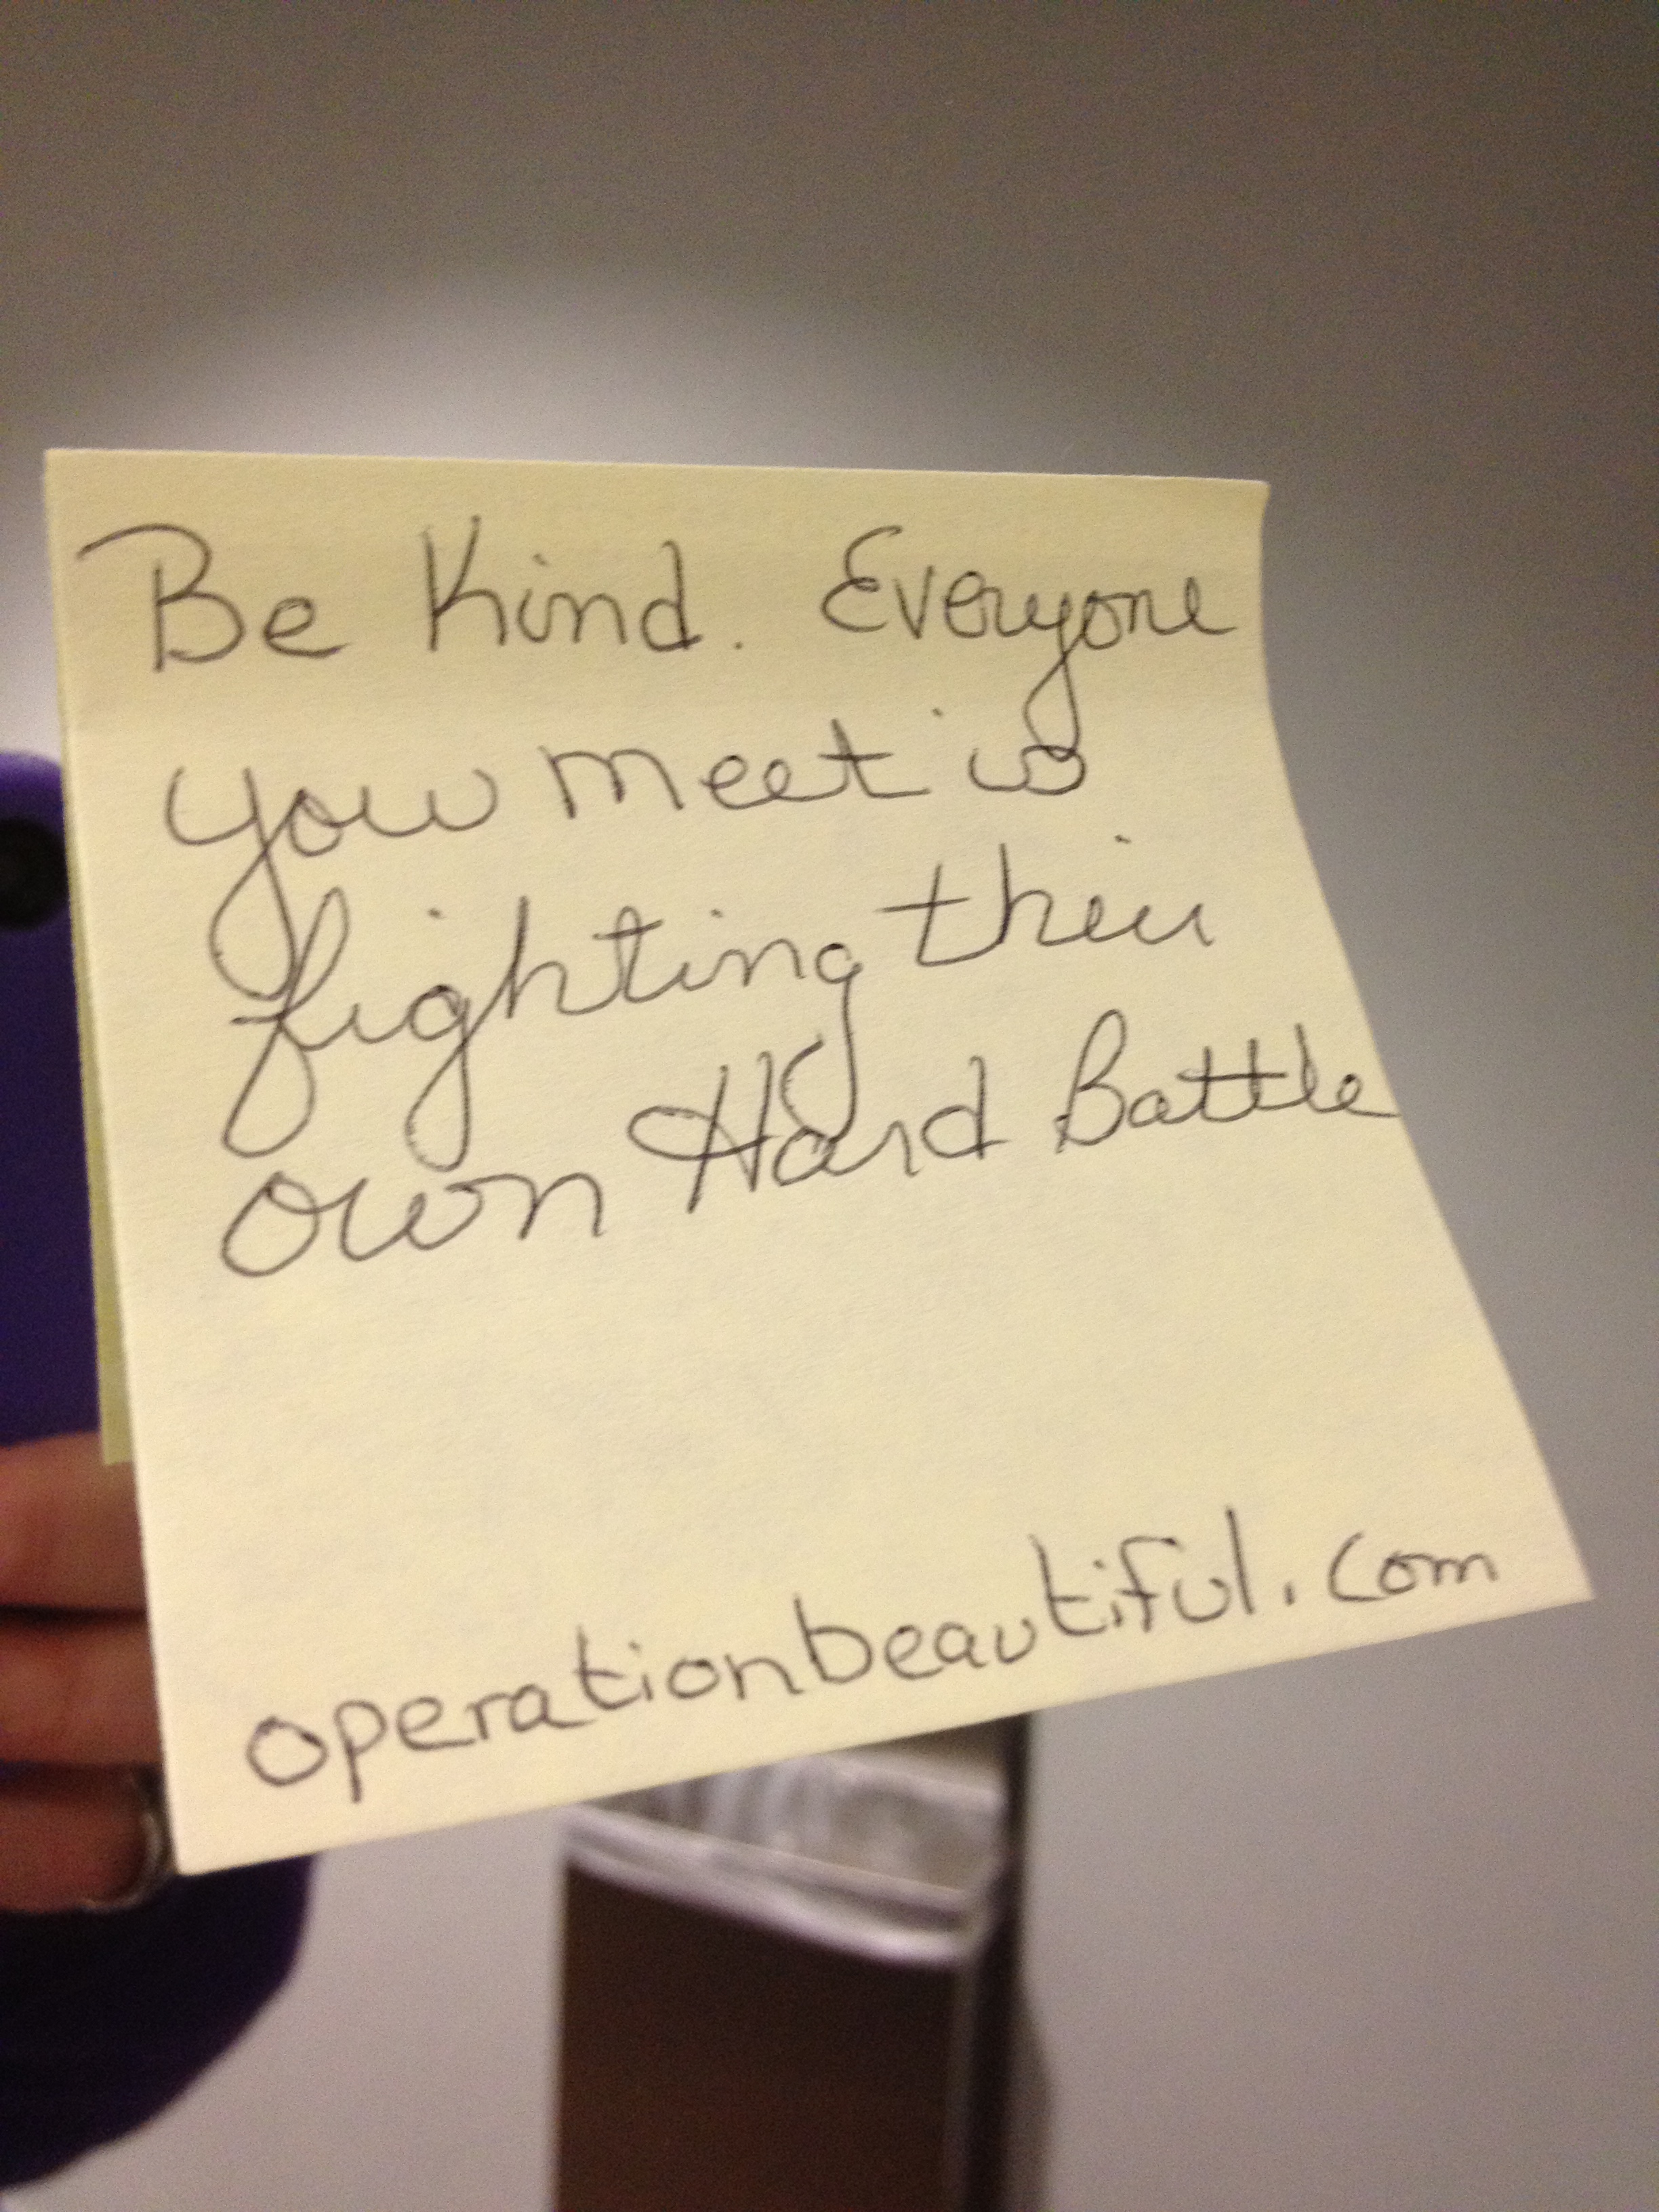 Be Kind. Everyone
you meet is
fighting their
own Hard Battle
operationbeautiful.com